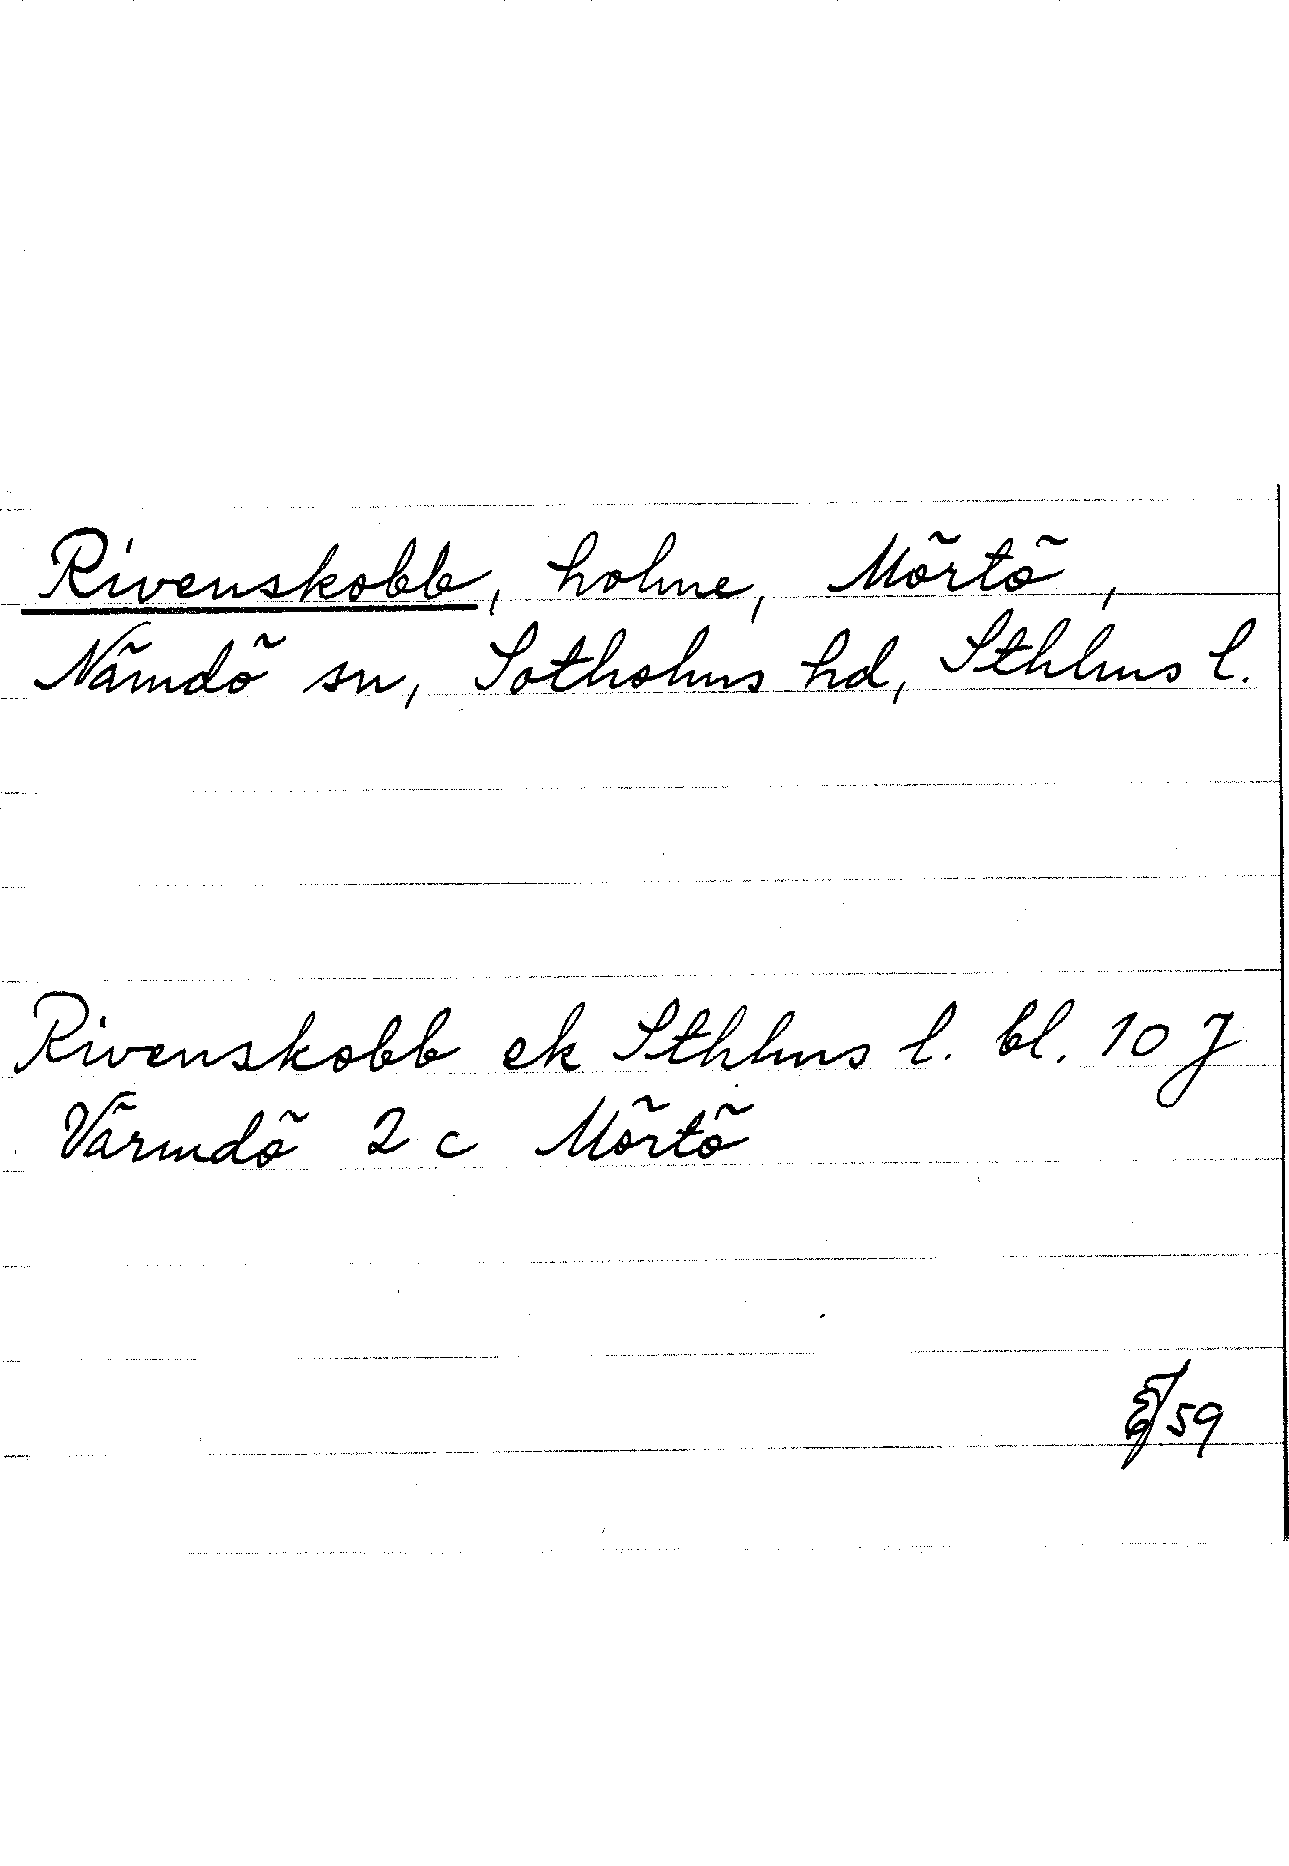 Rivenskobb, holme, Mörtö,
Nämdö sn, Sotholms hd, Sthlms l.
Rivenskobb ek Sthlms l. bl. 10 J
Värmdö 2 c Mörtö
59